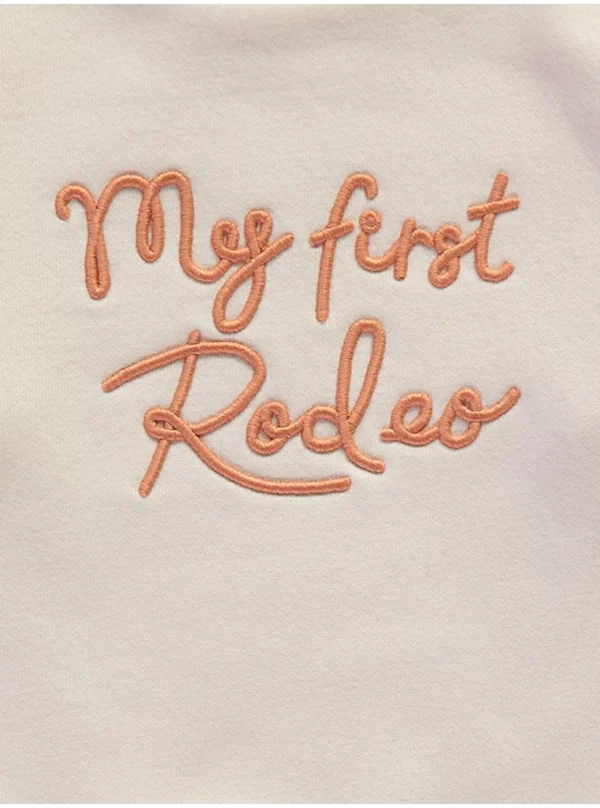 My first
Rodeo